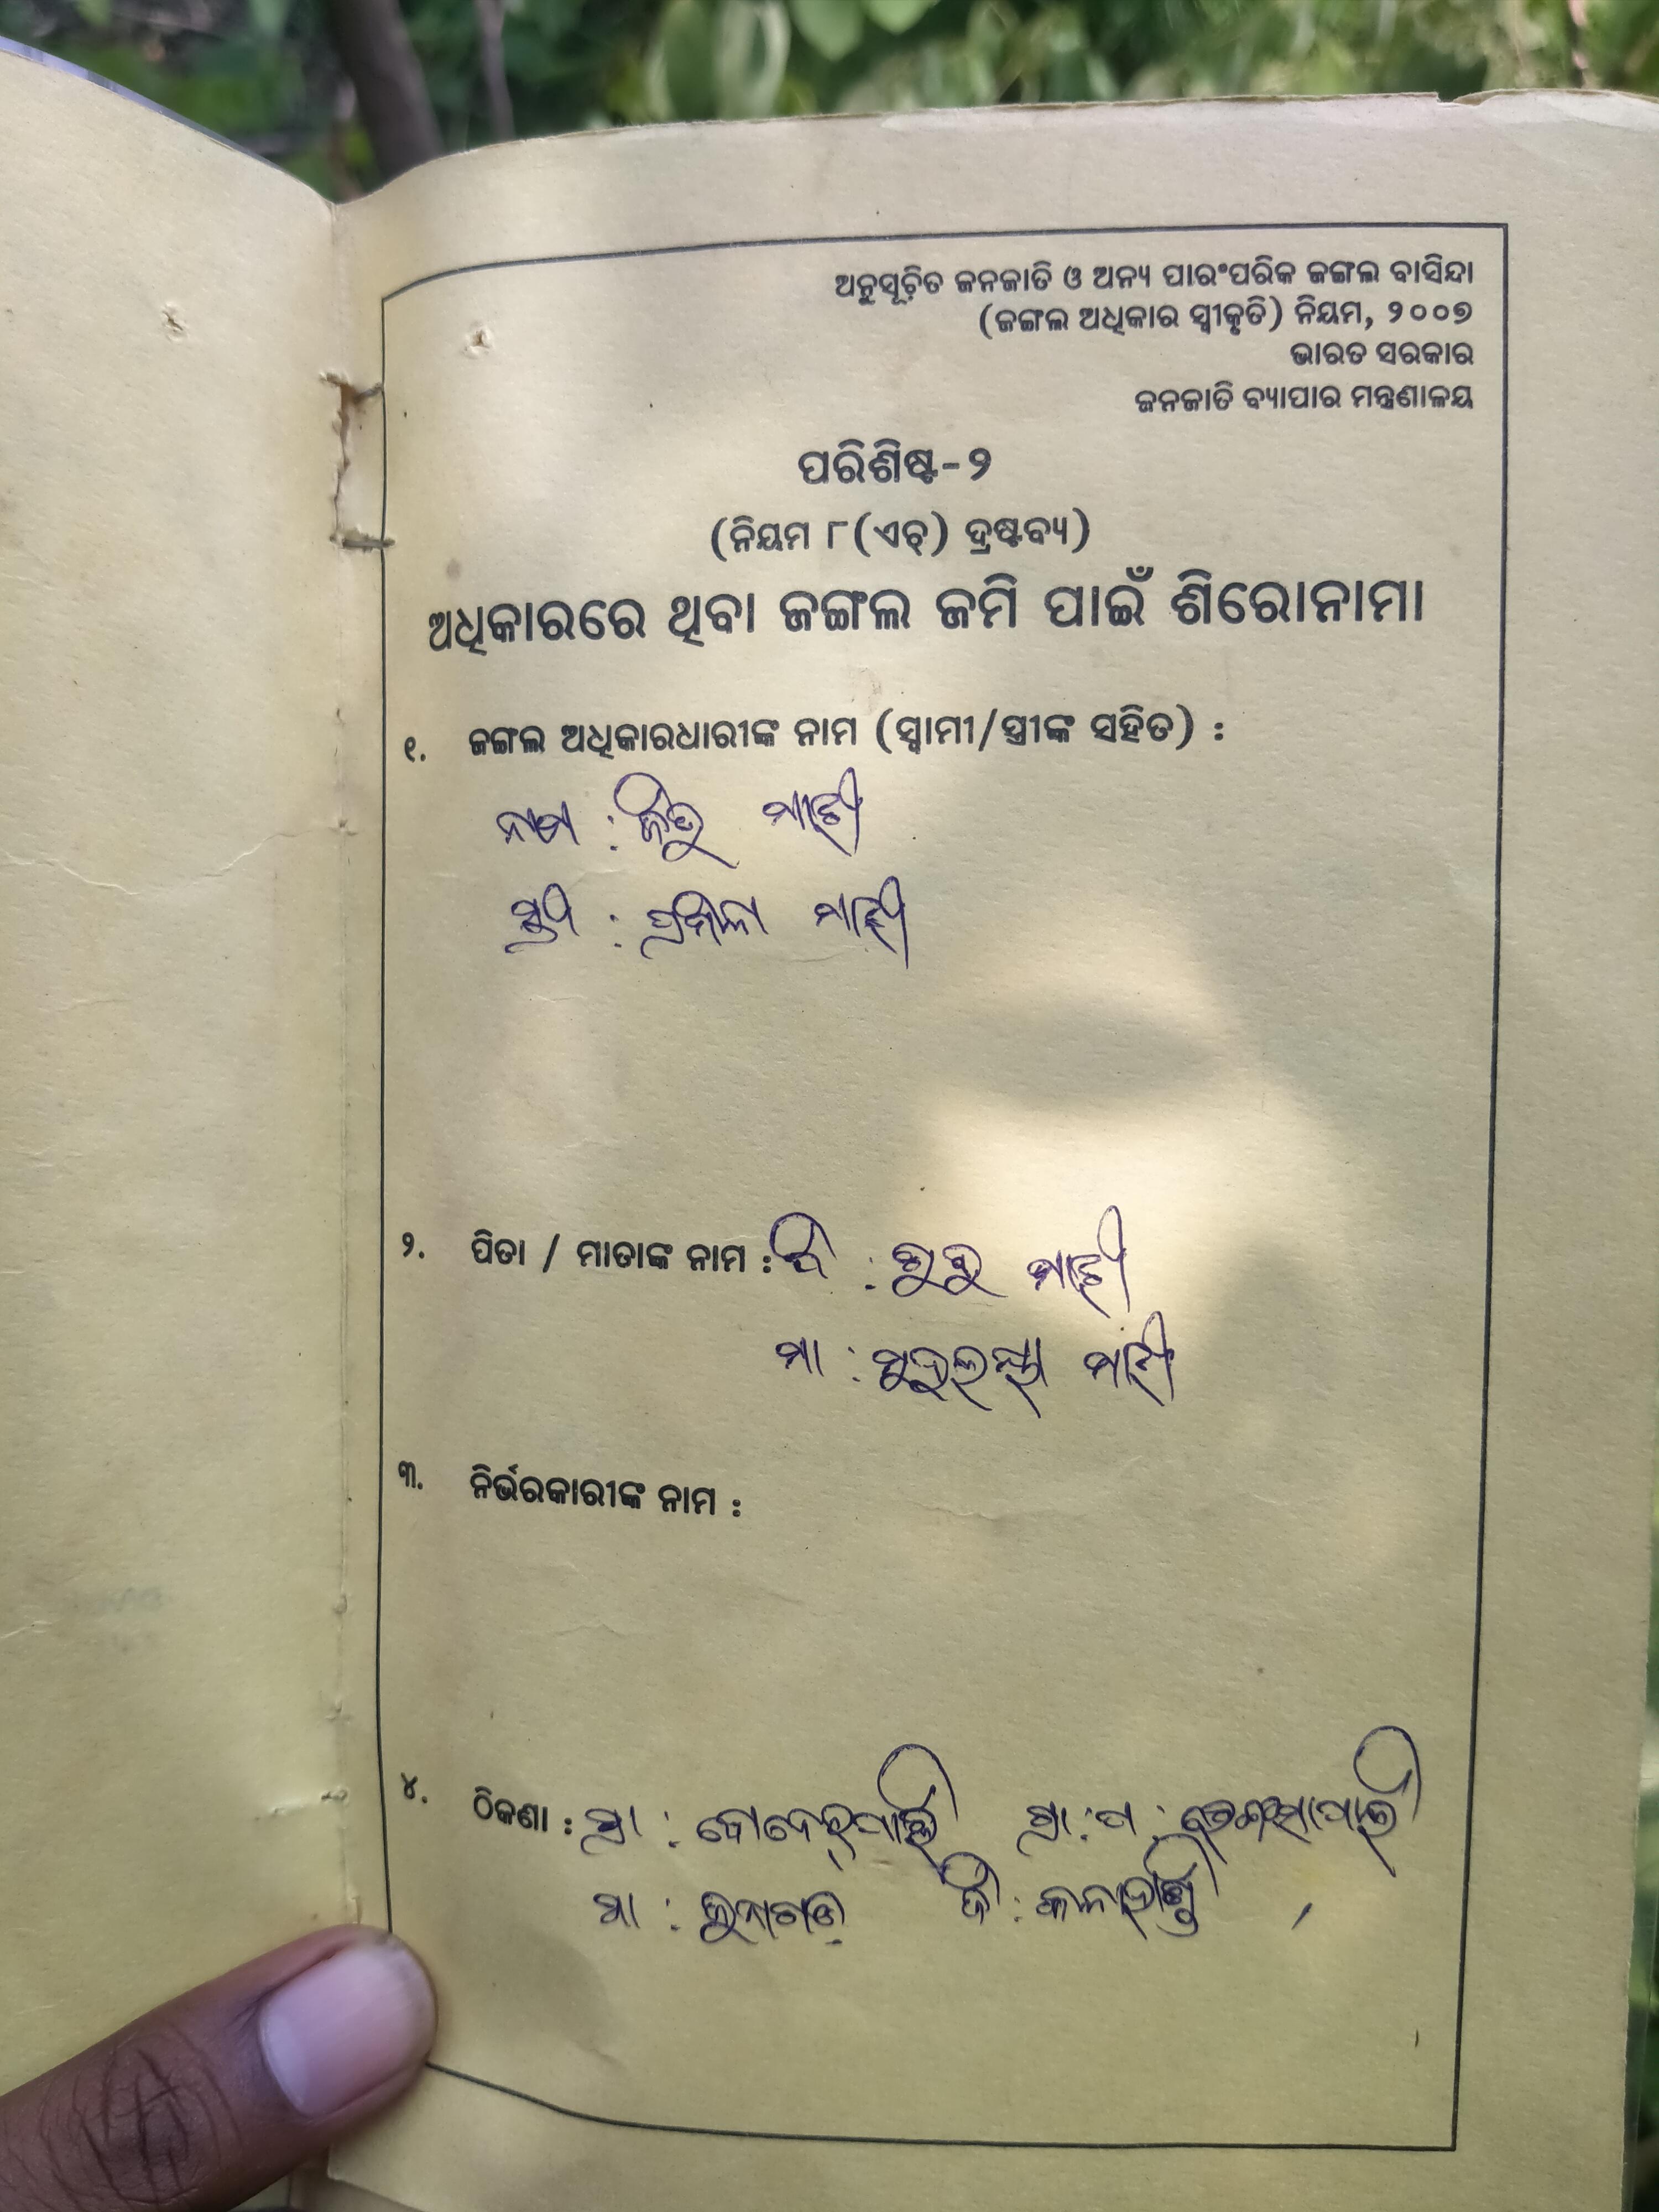 ଅନୁସୂଚିତ ଜନଜାତି ଓ ଅନ୍ୟ ପାରଂପରିକ ଜଙ୍ଗଲ ବାସିନ୍ଦା
(ଜଙ୍ଗଲ ଅଧିକାର ସ୍ୱୀକୃତି) ନିୟମ, ୨୦୦୭
ଭାରତ ସରକାର
ଜନଜାତି ବ୍ୟାପାର ମନ୍ତ୍ରଣାଳୟ
ପରିଶିଷ୍ଟ-୨
(ନିୟମ ୮(ଏଚ୍) ଦ୍ରଷ୍ଟବ୍ୟ)
ଅଧିକାରରେ ଥିବା ଜଙ୍ଗଲ ଜମି ପାଇଁ ଶିରୋନାମା
୧. ଜଙ୍ଗଲ ଅଧିକାରଧାରୀଙ୍କ ନାମ (ସ୍ୱାମୀ/ସ୍ତ୍ରୀଙ୍କ ସହିତ) :
ନାମ : ମାଝୀ
ସ୍ତ୍ରୀ : ପ୍ରମିଳା ମାଝୀ
୨. ପିତା / ମାତାଙ୍କ ନାମ : ପି : ମାଝୀ
ମା : ମାଝୀ
୩. ନିର୍ଭରକାରୀଙ୍କ ନାମ :
୪. ଠିକଣା : ଗ୍ରା : ଗ୍ରା : ପ :
ଜି : କଳାହାଣ୍ଡି